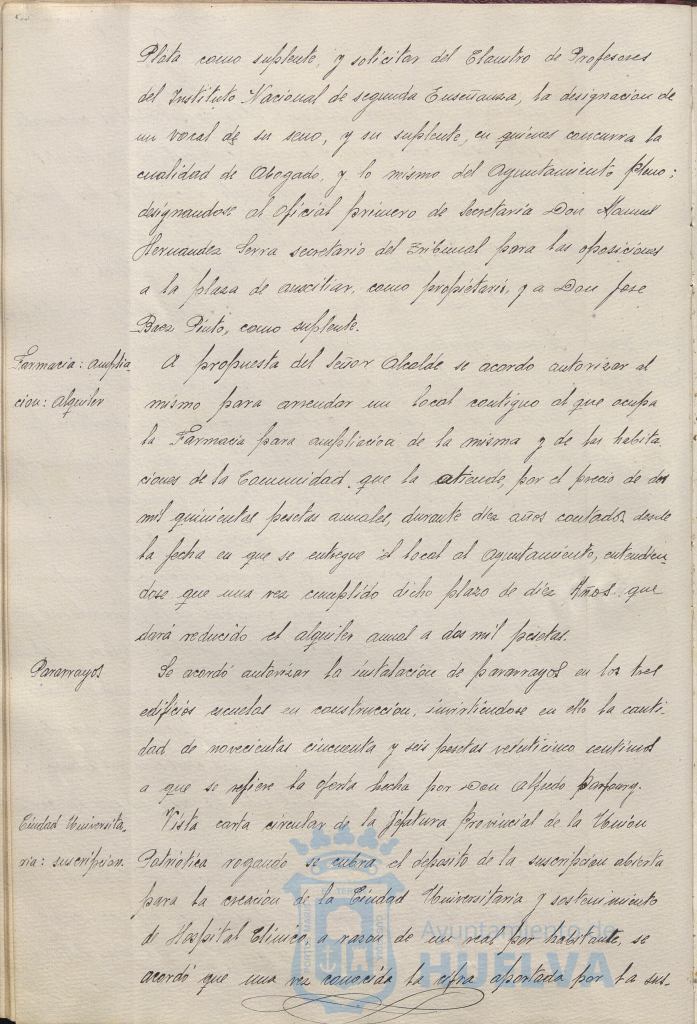 Plata como suplente, y solicitar del Claustro de Profesores
del Instituto Nacional de segunda Enseñanza, la designacion de
un vocal de su seno, y su suplente, en quienes concurra la
cualidad de Abogado, y lo mismo del Ayuntamiento pleno;
designandose al Oficial primero de Secretaria Don Manuel
Hernandez Serra secretario del Tribunal para las oposiciones
a la plaza de auxiliar, como propietario, y a Don Jose
Baez Pinto, como suplente.
Farmacia: amplia-
cion: Alquiler
A propuesta del Señor Alcalde se acordo autorizar al
mismo para arrendar un local contiguo al que ocupa
la Farmacia para ampliacion de la misma y de las habita
ciones de la Comunidad que la atiende, por el precio de dos
mil quinientas pesetas anuales, durante diez años contados desde
la fecha en que se entregue el local al Ayuntamiento, entendien-
dose que una vez cumplido dicho plazo de diez Años que
dará reducido el alquiler anual a dos mil pesetas.
Pararrayos
Se acordó autorizar la instalacion de pararrayos en los tres
edificios escuelas en construccion, invirtiendose en ello la canti
dad de novecientas cincuenta y seis pesetas veinticinco centimos
a que se refiere la oferta hecha por Don Alfredo
Ciudad Universita-
ria: suscripcion.
Vista carta circular de la Jefatura Provincial de la Union
Patriótica rogando se cubra el deposito de la suscripcion abierta
para la creacion de la Ciudad Universitaria y sostenimiento
de Hospital Clinico, a razon de un real por habitante, se
acordó que una vez conocida la cifra aportada por la sus-
Ayuntamiento de
HUELVA